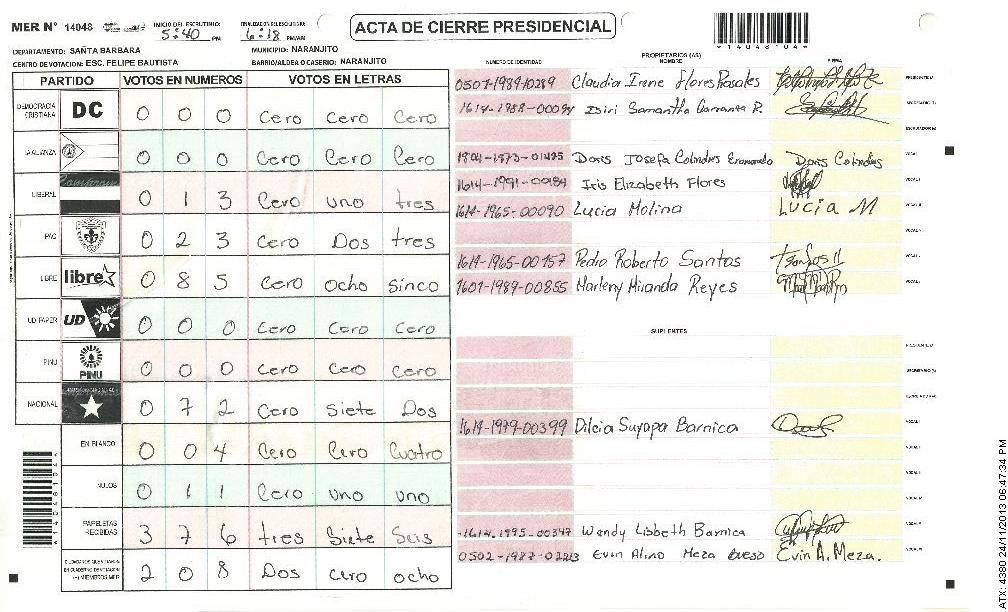 MER N° 14048
INICIO DEL ESCRUTINIO: 5:40 PM
FINALIZACION DEL ESCRUTINIO: 6:18 PM/AM
ACTA DE CIERRE PRESIDENCIAL
*14048104*
DEPARTAMENTO: SAÑTA BARBARA
MUNICIPIO: NARANJITO
CENTRO DE VOTACION: ESC. FELIPE BAUTISTA
BARRIO/ALDEA O CASERIO: NARANJITO
PARTIDO VOTOS EN NUMEROS VOTOS EN LETRAS
DEMOCRACIA CRISTIANA DC 0 0 0 Cero Cero Cero
LA ALIANZA 0 0 0 Cero Cero Cero
LIBERAL 0 1 3 Cero uno tres
PAC 0 2 3 Cero Dos tres
LIBRE libre 0 8 5 Cero ocho Sinco
UD FAPER UD 0 0 0 Cero Cero Cero
PINU PINU 0 0 0 Cero Cero Cero
NACIONAL 0 7 2 Cero Siete Dos
EN BLANCO 0 0 4 Cero Cero Cuatro
NULOS 0 1 1 Cero uno uno
PAPELETAS RECIBIDAS 3 7 6 tres Siete Seis
(+) MIEMBROS MER 2 0 8 Dos cero ocho
PROPIETARIOS (AS)
NUMERO DE IDENTIDAD NOMBRE FIRMA
0507-1989-10289 Claudia Irene Flores Rosales PRESIDENTE (A)
1614-1988-00094 Isiri Samantha R. SECRETARIO (A)
ESCRUTADOR (A)
1904-1973-01425 Doris Josefa Colindres Doris Colindres VOCAL I
1614-1991-00984 Iris Elizabeth Flores
1614-1965-00090 Lucia Molina Lucia M
1619-1965-00157 Pedro Roberto Santos
1601-1989-00855 Marleny Miranda Reyes
SUPLENTES
PRESIDENTE (A)
SECRETARIO (A)
1614-1979-00399 Dilcia Suyapa Barnica
1614-1995-00347 Wendy Lisbeth Barnica
0502-1987-02213 Evin Alino Meza Bueso Evin A. Meza.
ATX: 4380 24/11/2013 06:47:34 PM